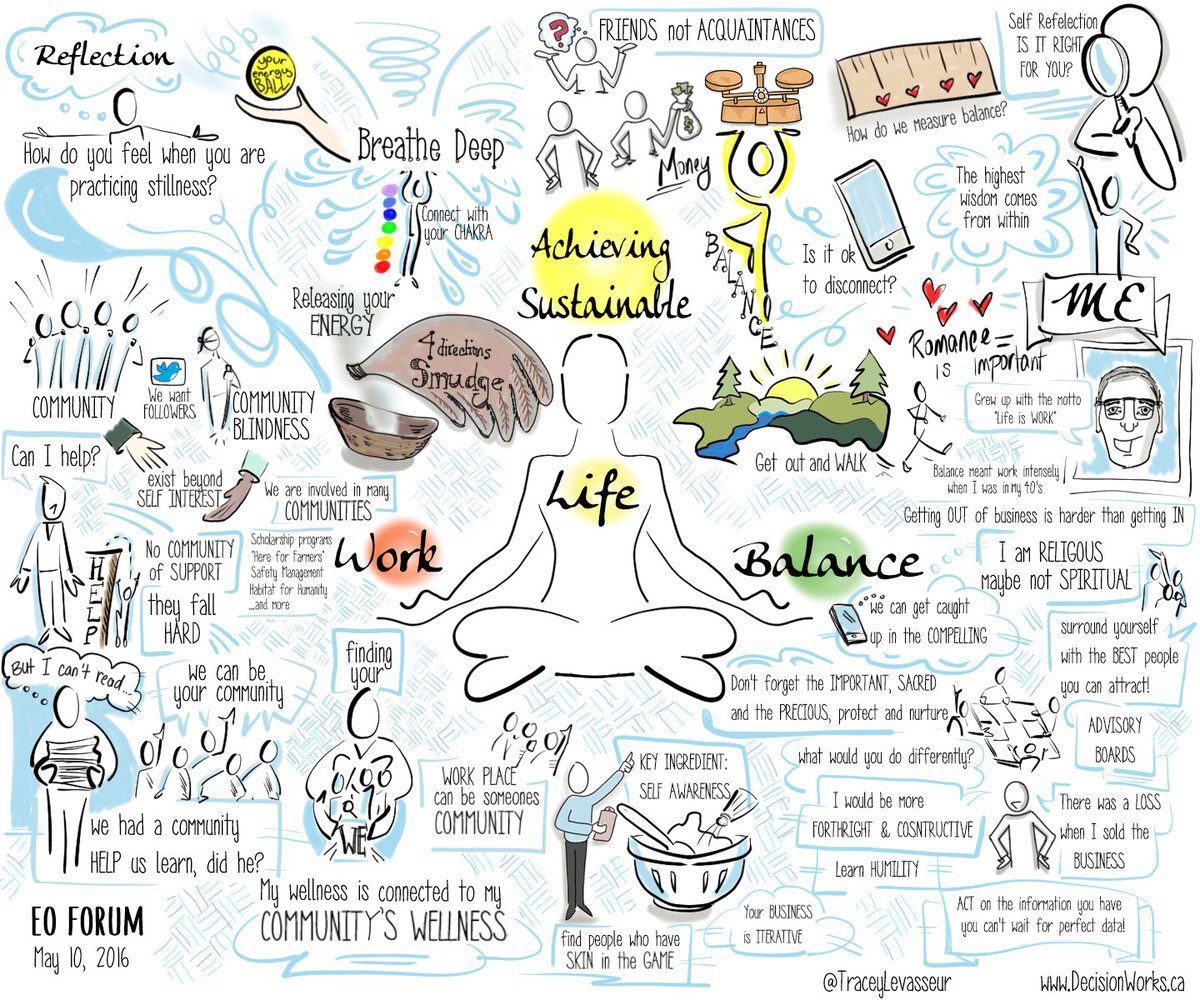 Reflection
your
energy
BALL
How do you feel when you are
practicing stillness?
Breathe Deep
Connect with
your CHAKRA
Releasing your
ENERGY
4 directions
Smudge
?
FRIENDS not ACQUAINTANCES
$
Money
BALANCE
How do we measure balance?
Self Refelection
IS IT RIGHT
FOR YOU?
The highest
wisdom comes
from within
Is it ok
to disconnect?
ME
Romance =
is important
Grew up with the motto
"Life is WORK"
Get out and WALK
Balance meant work intensely
when I was in my 40's
Getting OUT of business is harder than getting IN
Achieving
Sustainable
Life
Work
Balance
COMMUNITY
We want
FOLLOWERS
COMMUNITY
BLINDNESS
Can I help?
exist beyond
SELF INTEREST
We are involved in many
COMMUNITIES
Scholarship programs
"Here for Farmers"
Safety Management
Habitat for Humanity
...and more
HELP
No COMMUNITY
of SUPPORT
they fall
HARD
But I can't read...
we can be
your community
finding
your
WE
we had a community
HELP us learn, did he?
WORK PLACE
can be someones
COMMUNITY
My wellness is connected to my
COMMUNITY'S WELLNESS
KEY INGREDIENT:
SELF AWARENESS
find people who have
SKIN in the GAME
Your BUSINESS
is ITERATIVE
I am RELIGOUS
maybe not SPIRITUAL
we can get caught
up in the COMPELLING
surround yourself
with the BEST people
you can attract!
Don't forget the IMPORTANT, SACRED
and the PRECIOUS, protect and nurture
ADVISORY
BOARDS
what would you do differently?
I would be more
FORTHRIGHT & COSNTRUCTIVE
Learn HUMILITY
There was a LOSS
when I sold the
BUSINESS
ACT on the information you have
you can't wait for perfect data!
EO FORUM
May 10, 2016
@TraceyLevasseur
www.DecisionWorks.ca